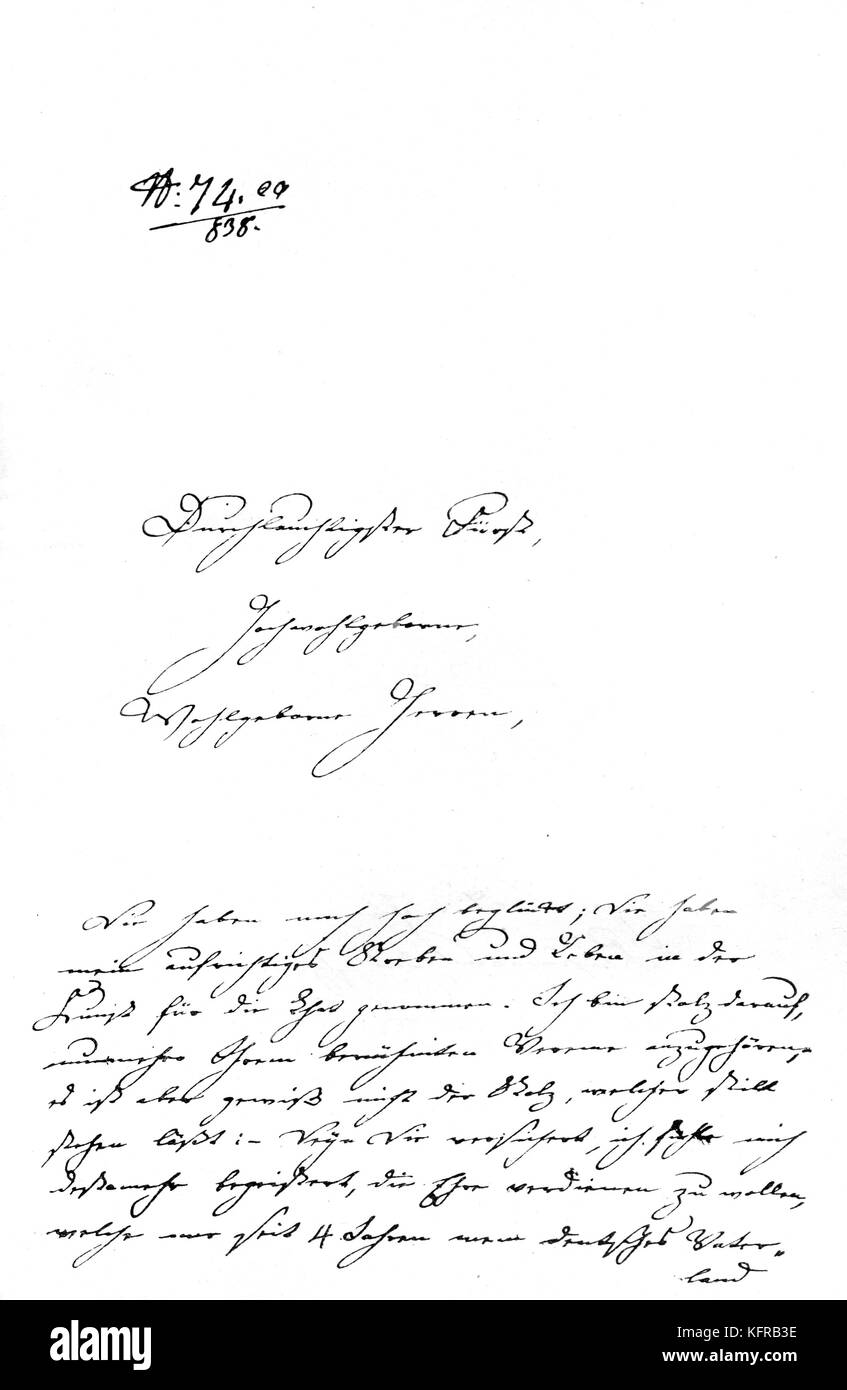 N: 74. ea
838.
Durchlauchtigster Fürst,
Hochwohlgeborne,
Wohlgeborne Herren,
Sie haben mich hoch beglückt; Sie haben
mein aufrichtiges Streben und Leben in der
Kunst für die That genommen. Ich bin stolz darauf,
nunmehr Ihrem berühmten Vereine anzugehören,
es ist aber gewiß nicht der Stolz, welcher still
stehen läßt: – Seyn Sie versichert, ich fühle mich
destomehr begeistert, die Ehre verdienen zu wollen,
welche mir seit 4 Jahren mein deutsches Vater-
land
alamy
Image ID: KFRB3E
www.alamy.com